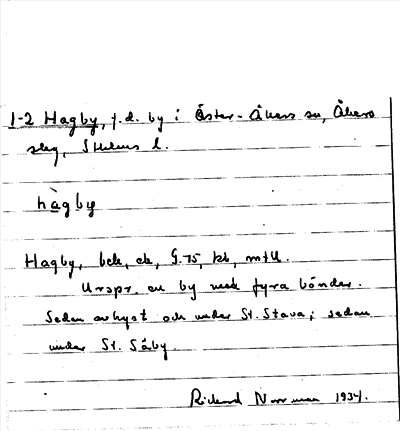 1-2 Hagby, f.d. by i Öster-Åkers sn, Åkers
skg, Sthlms l.
hàgby
Hagby, beb, ek, G.75, kb, mtl.
Urspr. en by med fyra bönder.
Sedan avhyst och under St. Stava; sedan
under St. Säby.
Rickard Norrman 1934.